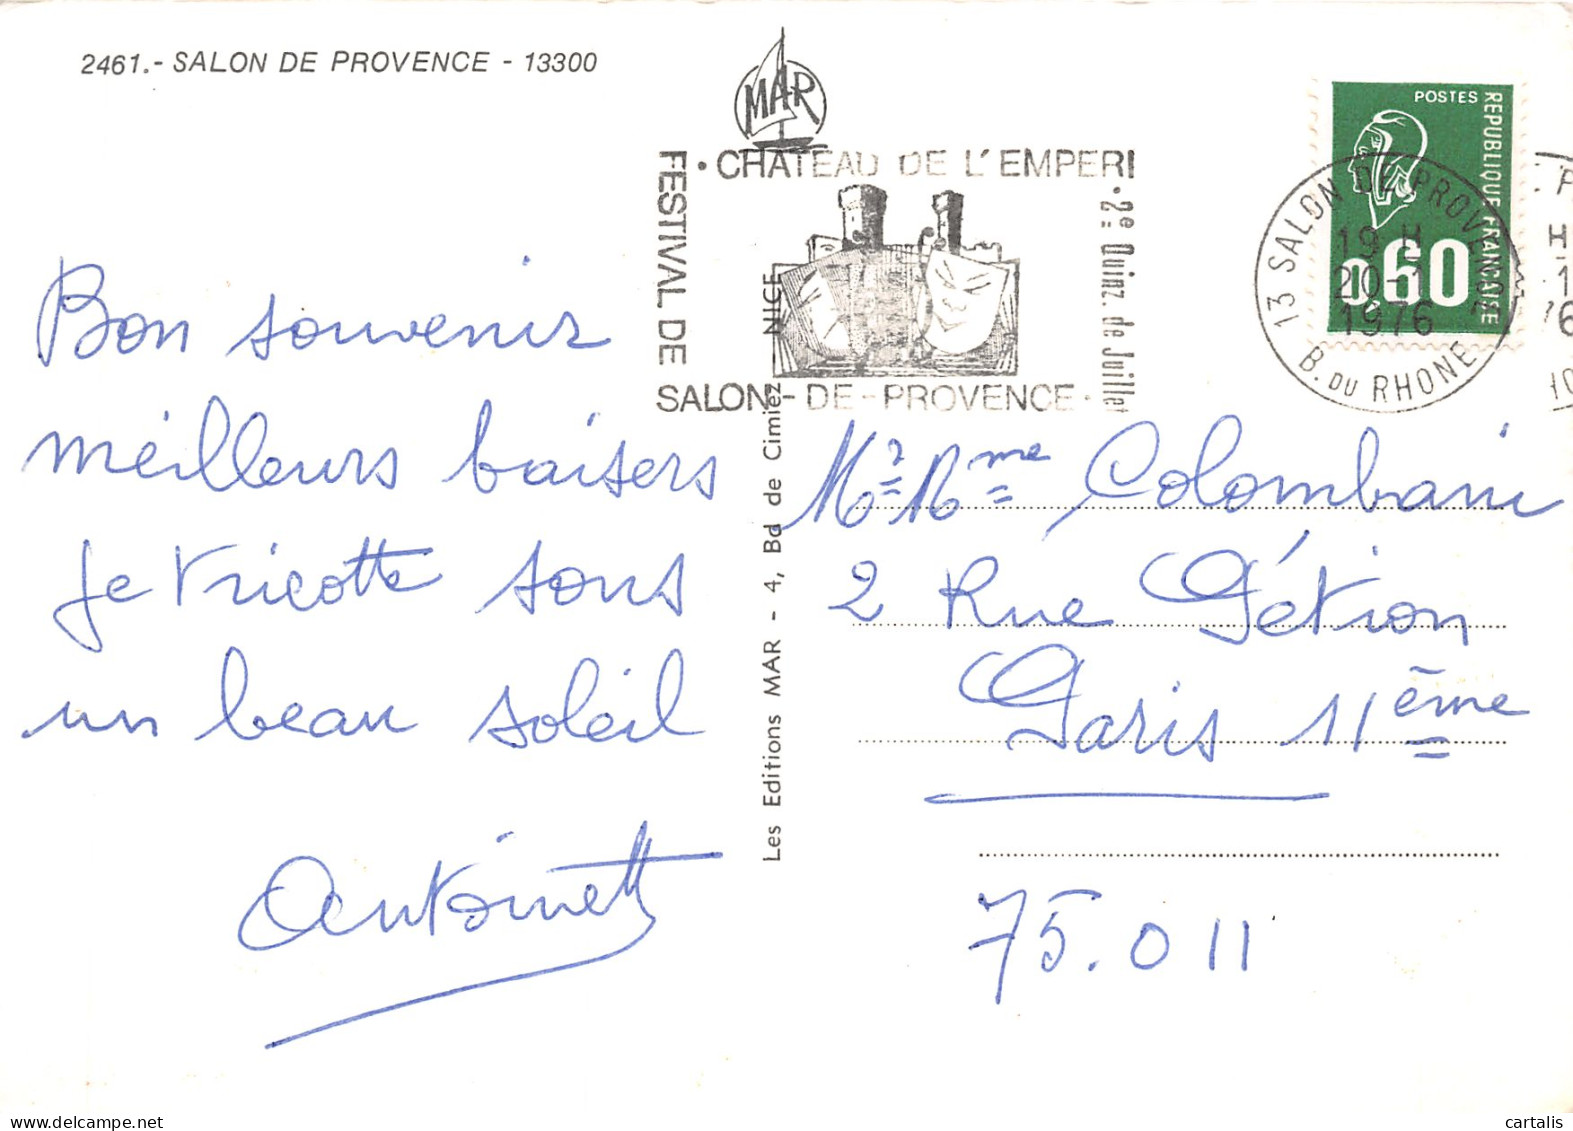 2461.- SALON DE PROVENCE - 13300
MAR
• CHATEAU DE L'EMPERI
FESTIVAL DE
SALON-DE-PROVENCE •
• 2e Quinz. de Juillet
POSTES
REPUBLIQUE FRANCAISE
0,60
13 SALON DE PROVENCE
19 H
20-1
1976
B. DU RHONE
Bon souvenir
meilleurs baisers
Je tricotte sous
un beau soleil
Antoinette
Les Editions MAR - 4, Bd de Cimiez - NICE
Mr Mme Colombani
2 Rue Pétion
Paris 11ème
75.011
cartalis